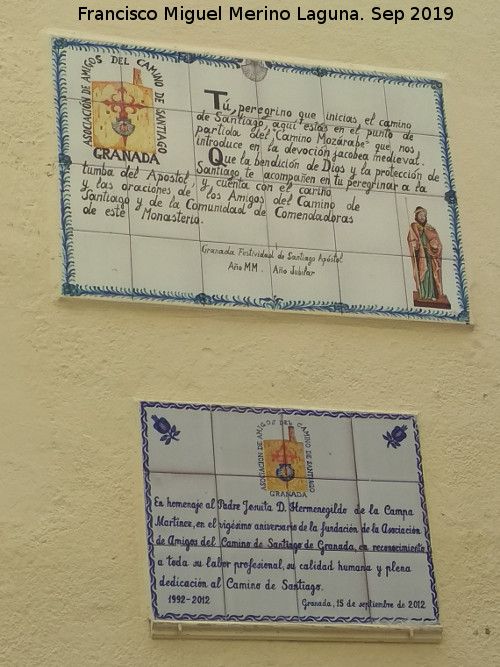 Francisco Miguel Merino Laguna. Sep 2019
ASOCIACIÓN DE AMIGOS DEL CAMINO DE SANTIAGO
GRANADA
Tú, peregrino que inicias, el camino
de Santiago, aquí estás en el punto de
partida del "Camino Mozárabe" que nos
introduce en la devoción jacobea medieval.
Que la bendición de Dios y la protección de
Santiago te acompañen en tu peregrinar a la
tumba del Apostol, y cuenta con el cariño
y las oraciones de los Amigos del Camino de
Santiago y de la Comunidad de Comendadoras
de este Monasterio.
Granada Festividad de Santiago Apóstol
Año MM. Año Jubilar
ASOCIACIÓN DE AMIGOS DEL CAMINO DE SANTIAGO
GRANADA
En homenaje al Padre Jesuita D. Hermenegildo de la Campa
Martínez, en el vigésimo aniversario de la fundación de la Asociación
de Amigos del Camino de Santiago de Granada, en reconocimiento
a toda su labor profesional, su calidad humana y plena
dedicación al Camino de Santiago.
1992-2012
Granada, 15 de septiembre de 2012